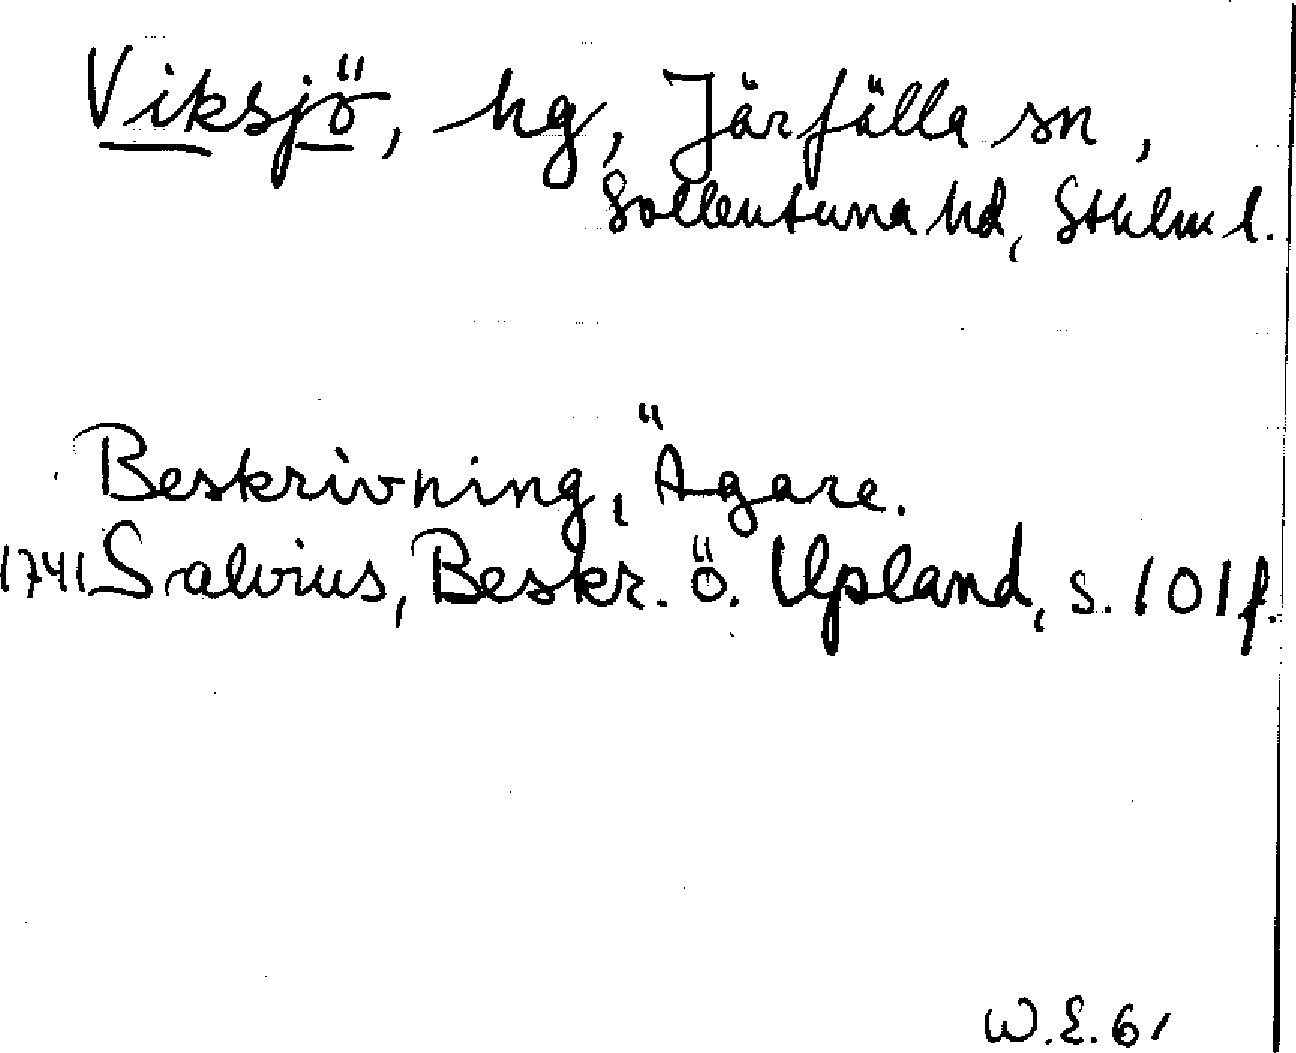 Viksjö, hg, Järfälla sn,
Sollentuna hd, Sthlm l.
Beskrivning, Ägare.
1741 Salvius, Beskr. ö. Upland, s. 101 f.
W.E. 61